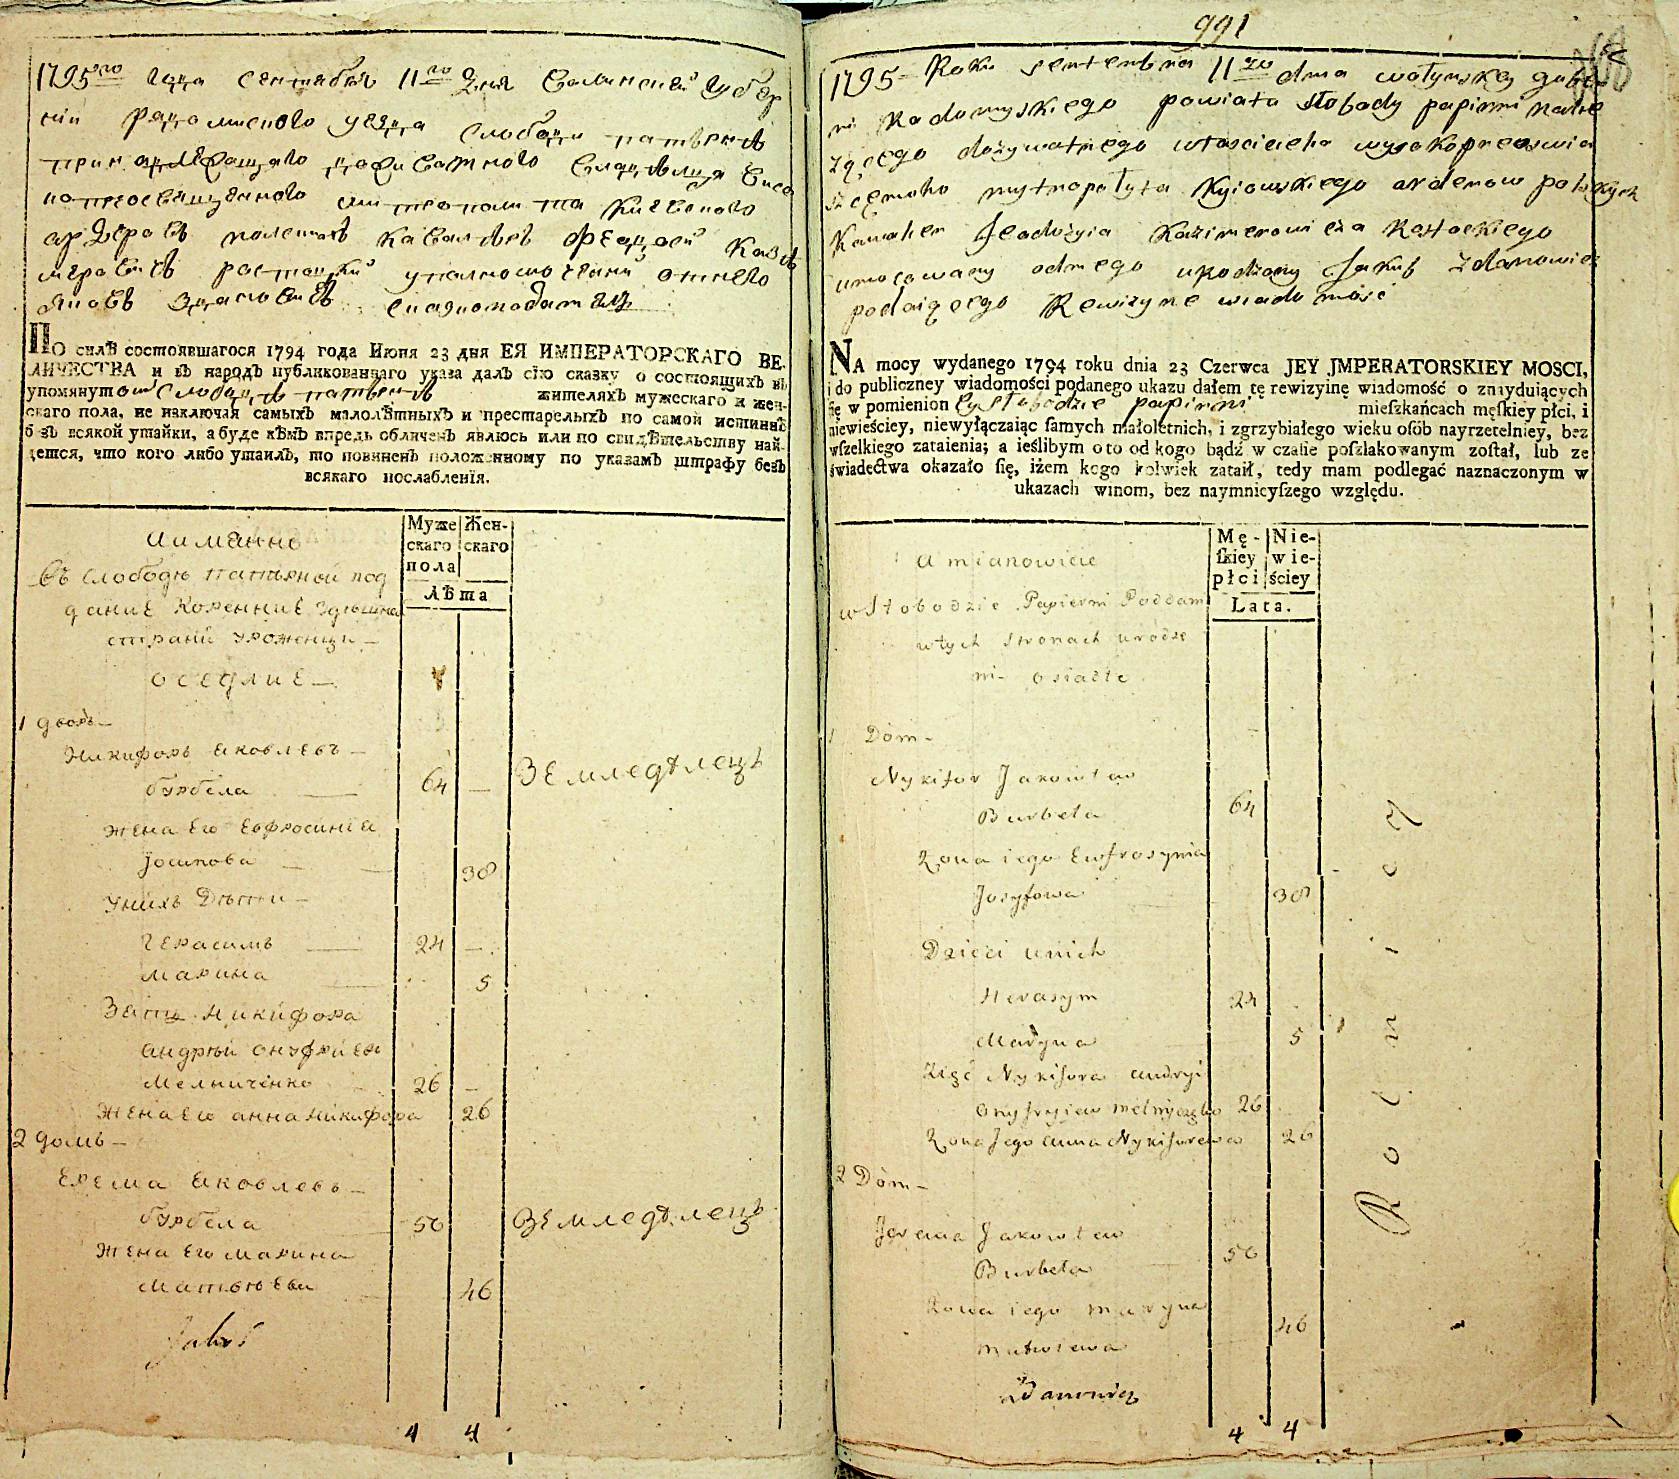 1795го года сентября 11го дня Волинской губер
нии Радомиского уезда слободи папѣрнѣ
принадлежащаго доживатного владѣлца висо
копреосвященого митрополита Киевского
ордеровъ полскихъ кавалѣра Феодосей Кази
мѣровичъ ростоцкий уполномоченний отнего
Яковъ Здановичъ
ПО силѣ состоявшагося 1794 года Июня 23 дня ЕЯ ИМПЕРАТОРСКАГО ВЕ-
ЛИЧЕСТВА и въ народъ публикованнаго указа далъ сїю сказку о состоящихъ въ
упомянутой Слободѣ папѣрнѣ жителяхъ мужескаго и жен-
скаго пола, не изключая самыхъ малолѣтныхъ и престарелыхъ по самой истиннѣ
безъ всякой утайки, а буде кѣмъ впредь обличенъ явлюсь или по свидѣтельству най-
дется, что кого либо утаилъ, то повиненъ положенному по указамъ штрафу безъ
всякаго послабленїя.
Муже
скаго
пола
Жен-
скаго
Лѣта
аимянно
въ слободѣ папѣрной под
дание коренние здешна
страни уроженци
оседлие
1 дворъ
Никифоръ Яковлевъ
бурбела 64 — Земледѣлецъ
жена его Евфросиния
Јосипова 38
Унихъ Дѣти
Герасимъ 24 —
Марина 5
Зять Никифора
андрѣй онуфрїевъ
Мелниченко 26 —
Жена его анна Никифора 26
2 домъ
Ерема Яковлевъ
бурбела 56 Земледѣлецъ
жена его марина
матвѣева 46
Jakub
4 4
991
1795 Roku septembra 11go dnia wołynskey guber
ni Radomyskiego powiatu słobody papirni nale
zącego dożywatnego własciciela wysokopreoswia
szczęnoho mytropołyta Kyiowskiego orderow polskych
Kawaler Feodozyia Kazimerowicza Rostockiego
umocowany odniego urodzony Jakub Zdanowicz
podaiącego Rewizyine wiadomość
NA mocy wydanego 1794 roku dnia 23 Czerwca JEY JMPERATORSKIEY MOSCI,
i do publiczney wiadomości podanego ukazu dałem tę rewizyinę wiadomość o znayduiących
się w pomienioney słobodzie papirni mieſzkańcach męſkiey płci, i
niewieściey, niewyłączaiąc ſamych małoletnich, i zgrzybiałego wieku oſób nayrzetelniey, bez
wſzelkiego zataienia; a ieślibym oto od kogo bądź w czaſie poſzlakowanym zoſtał, lub ze
świadectwa okazało się, iżem kogo kolwiek zataił, tedy mam podlegać naznaczonym w
ukazach winom, bez naymnieyſzego względu.
Mę-
ſkiey
płci
Nie-
wie-
ściey
Lata.
a mianowicie
w Słobodzie Papierni Poddani
wtych Stronach urodze
ni osiadłe
1 Dóm
Nykifor Jakowlew
Burbeła 64
Żona iego Ewfrosynia
Josyfowa 38
Dzieci unich
Herasym 24
Maryna 5
Zięć Nykifora andryi
Onyfryiew melnyczęko 26
Żona Jego anna Nykiforewa 26
2 Dóm
Jerema Jakowlew
Burbeła 56
Żona iego maryna
matwiewa 46
Zdanowicz
4 4
Rolnicy